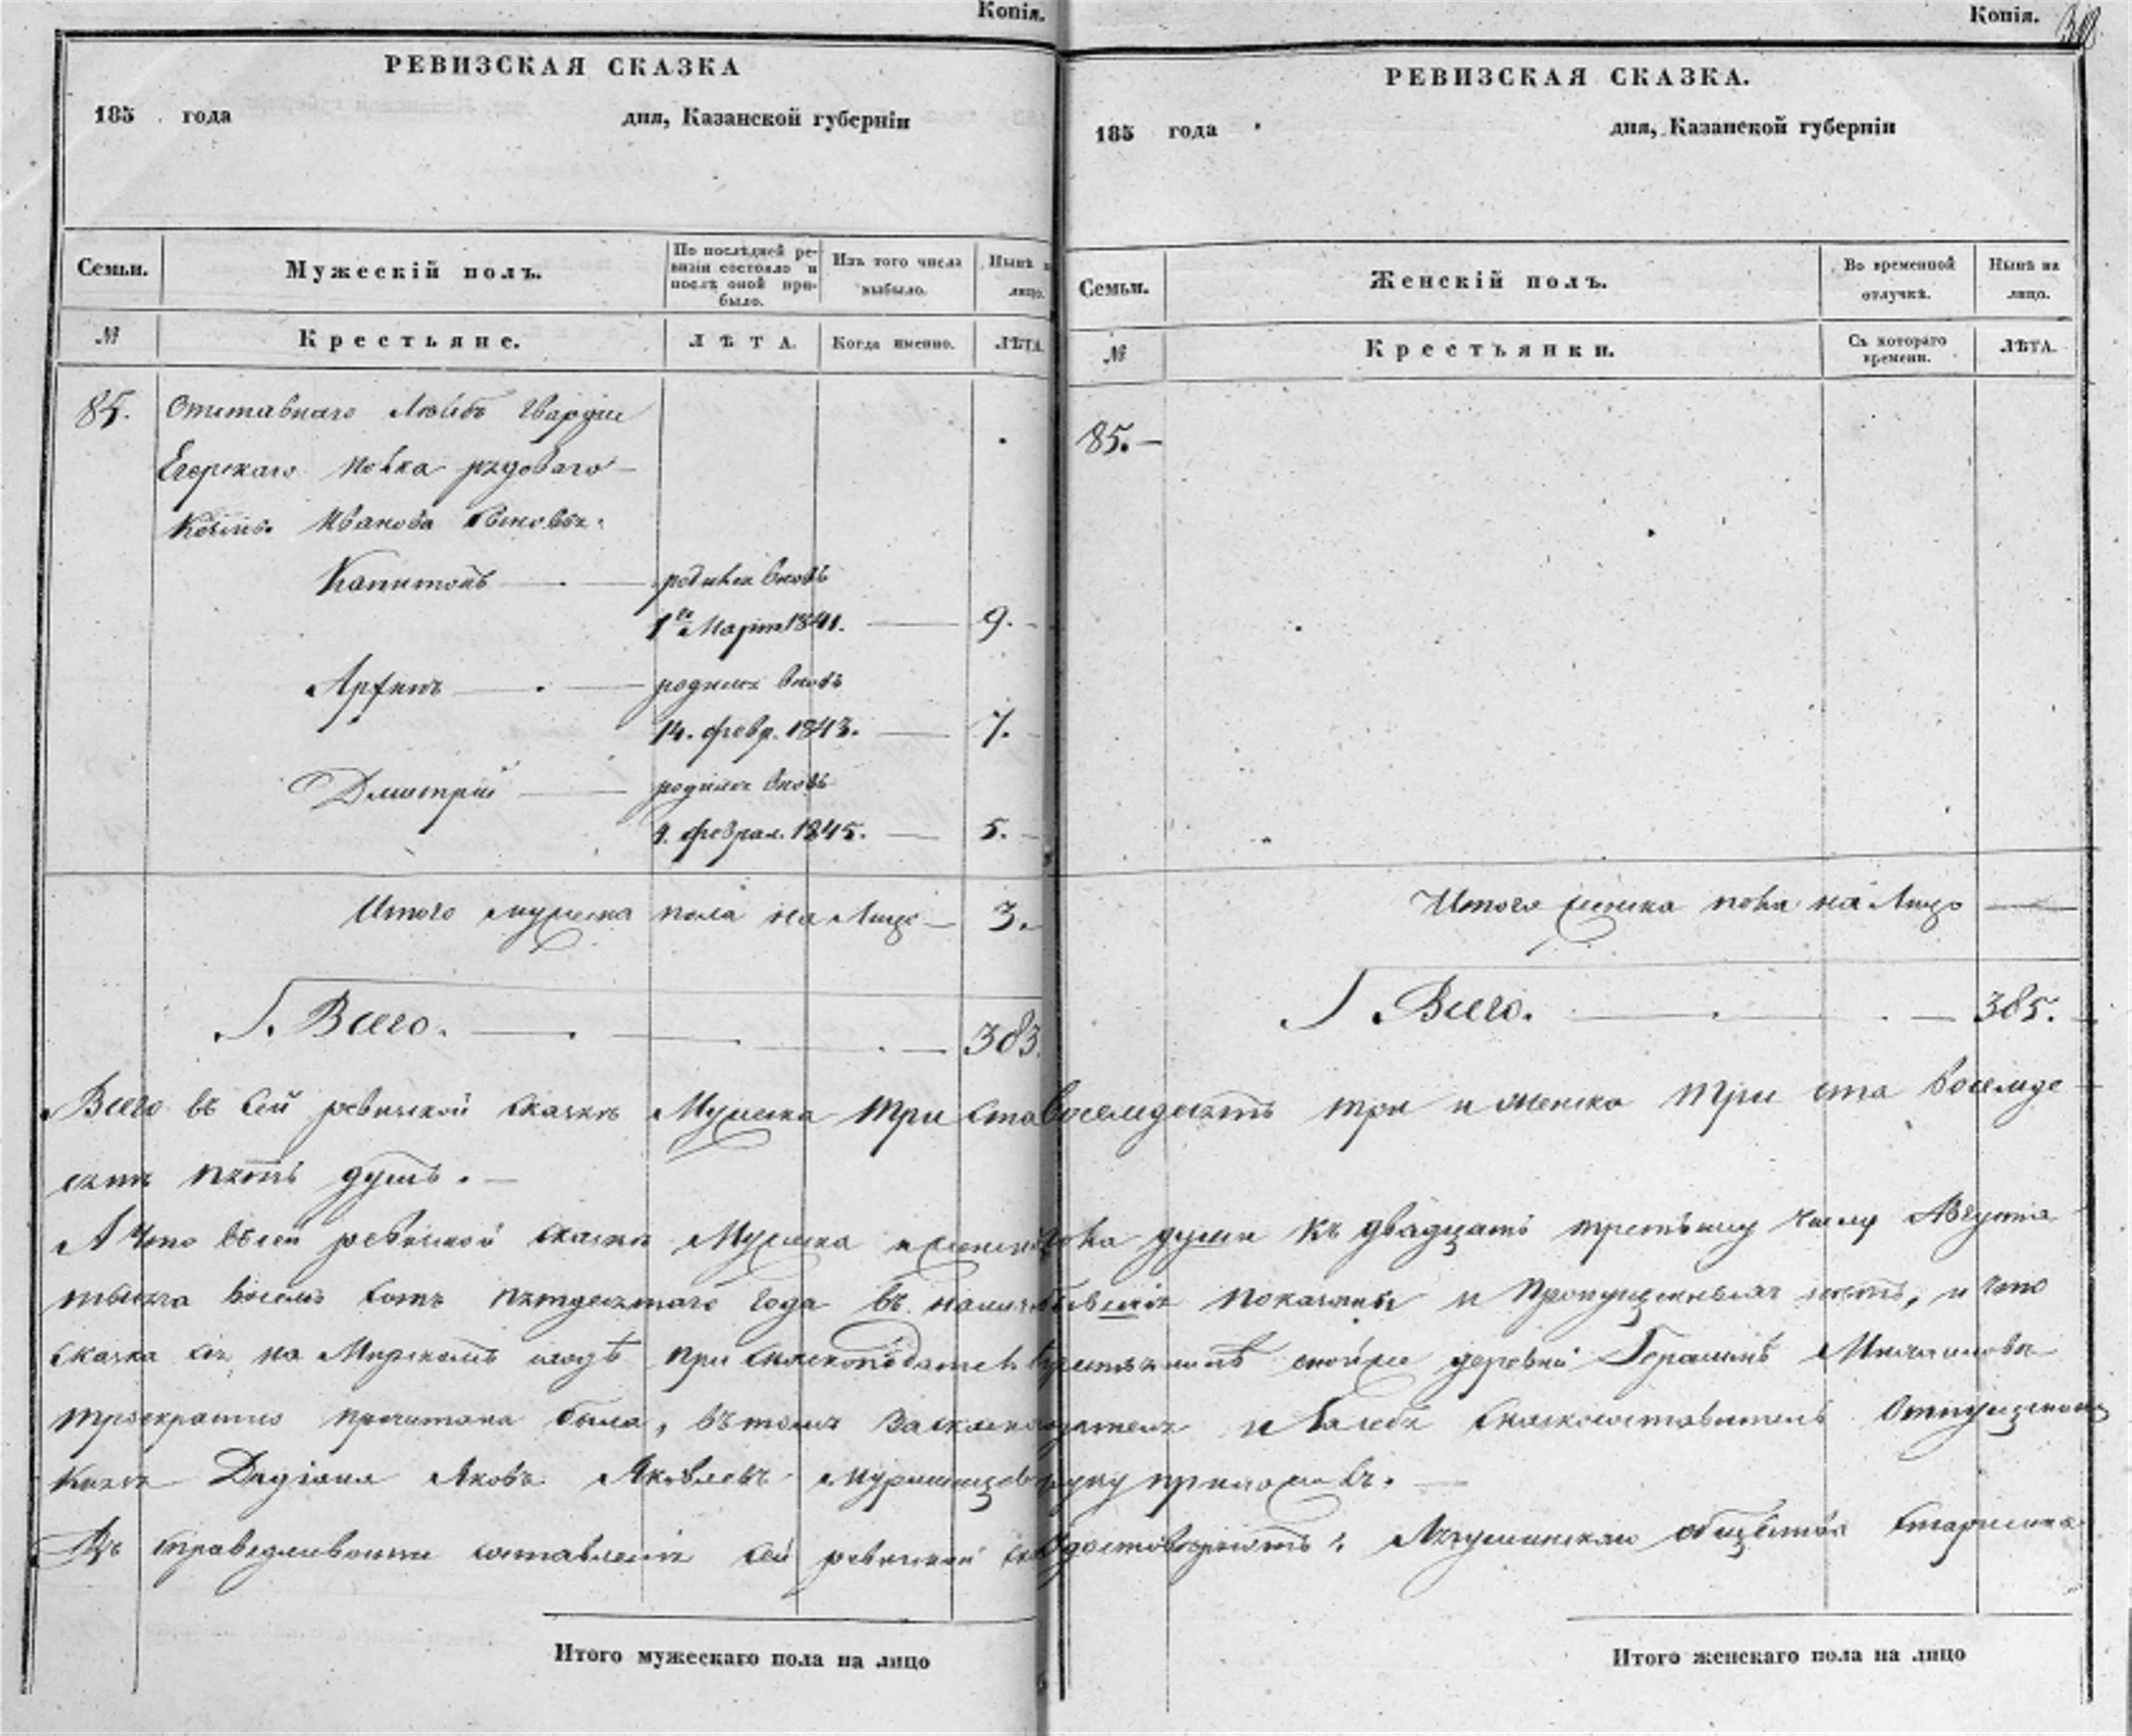 Копія.
РЕВИЗСКАЯ СКАЗКА
185 года дня, Казанской губерніи
Семьи. Мужескій полъ. По послѣдней ревизіи состояло и послѣ оной прибыло. Изъ того числа выбыло. Нынѣ на лицо.
№ Крестьяне. ЛѢТА. Когда именно. ЛѢТА.
85. Отставнаго Лейбъ Гвардіи
Егерскаго полка рядоваго
Иванова сыновья:
Капитонъ родился вновь
1го Марта 1841. 9.
родился вновь
14. февр. 1843. 7.
Дмитрій родился вновь
феврал. 1845. 5.
Итого мужска пола на лицо 3.
Всего. 383.
Копія.
РЕВИЗСКАЯ СКАЗКА.
185 года дня, Казанской губерніи
Семьи. Женскій полъ. Во временной отлучкѣ. Нынѣ на лицо.
№ Крестьянки. Съ котораго времени. ЛѢТА.
85.
Итого женска пола на лицо
Всего. 385.
Всего въ сей ревизской сказкѣ мужска три ста восемдесятъ три и женска три ста восемде
сятъ пять душъ.
А что въ сей ревизской сказкѣ мужска и женска пола души къ двадцать третьему числу Августа
тысяча восемь сотъ пятдесятаго года въ наличности показаны и пропущенныхъ нѣтъ, и что
сказка сія на Мирскомъ сходѣ при крестьянинѣ деревни
троекратно прочитана была, въ томъ и
Князя Дадіана Яковъ Яковлевъ руку приложилъ.
Въ справедливости составленія сей ревизской удостовѣряютъ: общества Старшина
Итого мужескаго пола на лицо
Итого женскаго пола на лицо